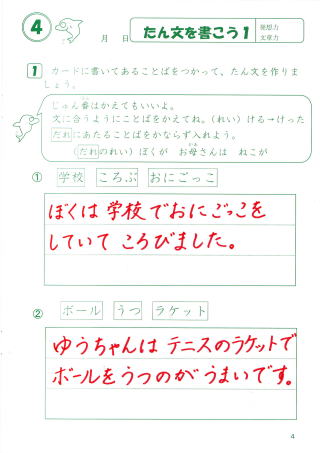 4
月 日
たん文を書こう1
発想力
文章力
1 カードに書いてあることばをつかって、たん文を作りま
しょう。
じゅん番はかえてもいいよ。
文に合うようにことばをかえてね。(れい) ける→けった
だれにあたることばをかならず入れよう。
(だれのれい) ぼくが お母さんは ねこが
① 学校 ころぶ おにごっこ
ぼくは学校でおにごっこを
していて ころびました。
② ボール うつ ラケット
ゆうちゃんは テニスのラケットで
ボールをうつのが うまいです。
4